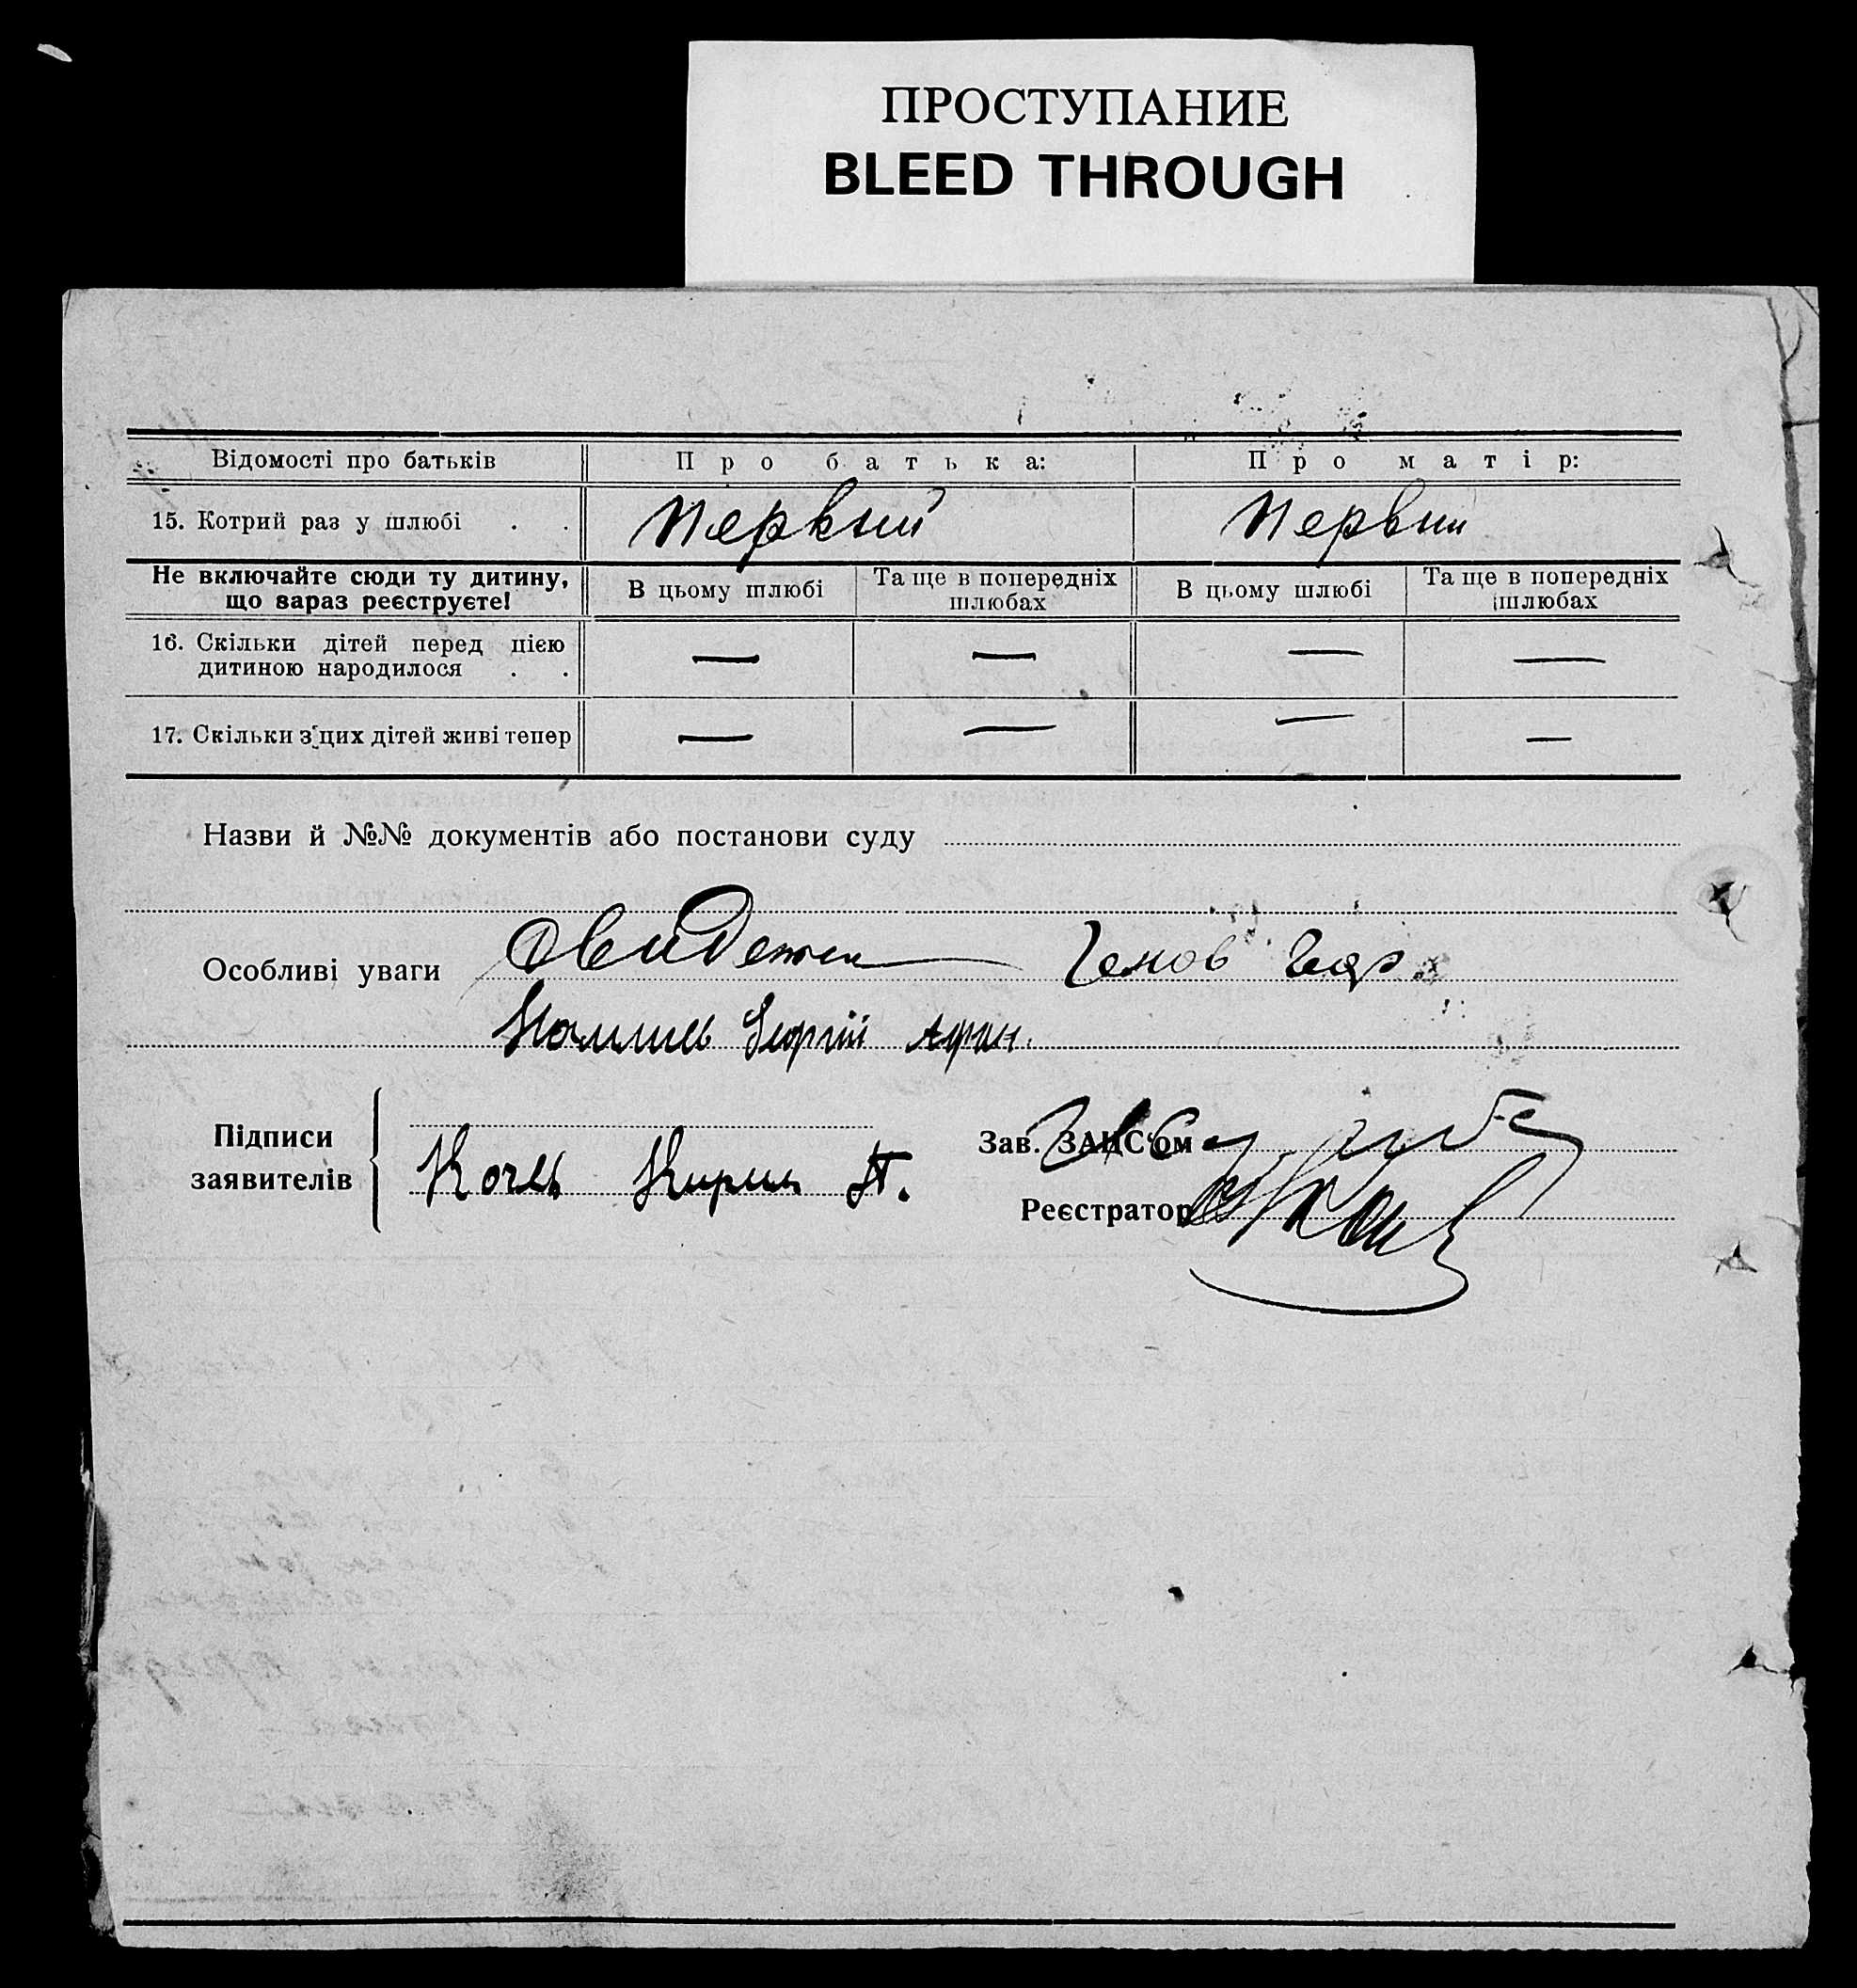 ПРОСТУПАНИЕ
BLEED THROUGH
Відомості про батьків Про батька: Про матір:
15. Котрий раз у шлюбі . . Первый Первый
Не включайте сюди ту дитину, що зараз реєструєте! В цьому шлюбі Та ще в попередніх шлюбах В цьому шлюбі Та ще в попередніх шлюбах
16. Скільки дітей перед цією дитиною народилося . . — — — —
17. Скільки з цих дітей живі тепер — — — —
Назви й №№ документів або постанови суду
Особливі уваги
Георгій Афан.
Підписи заявителів
Зав. ЗАЦС'ом
Реєстратор